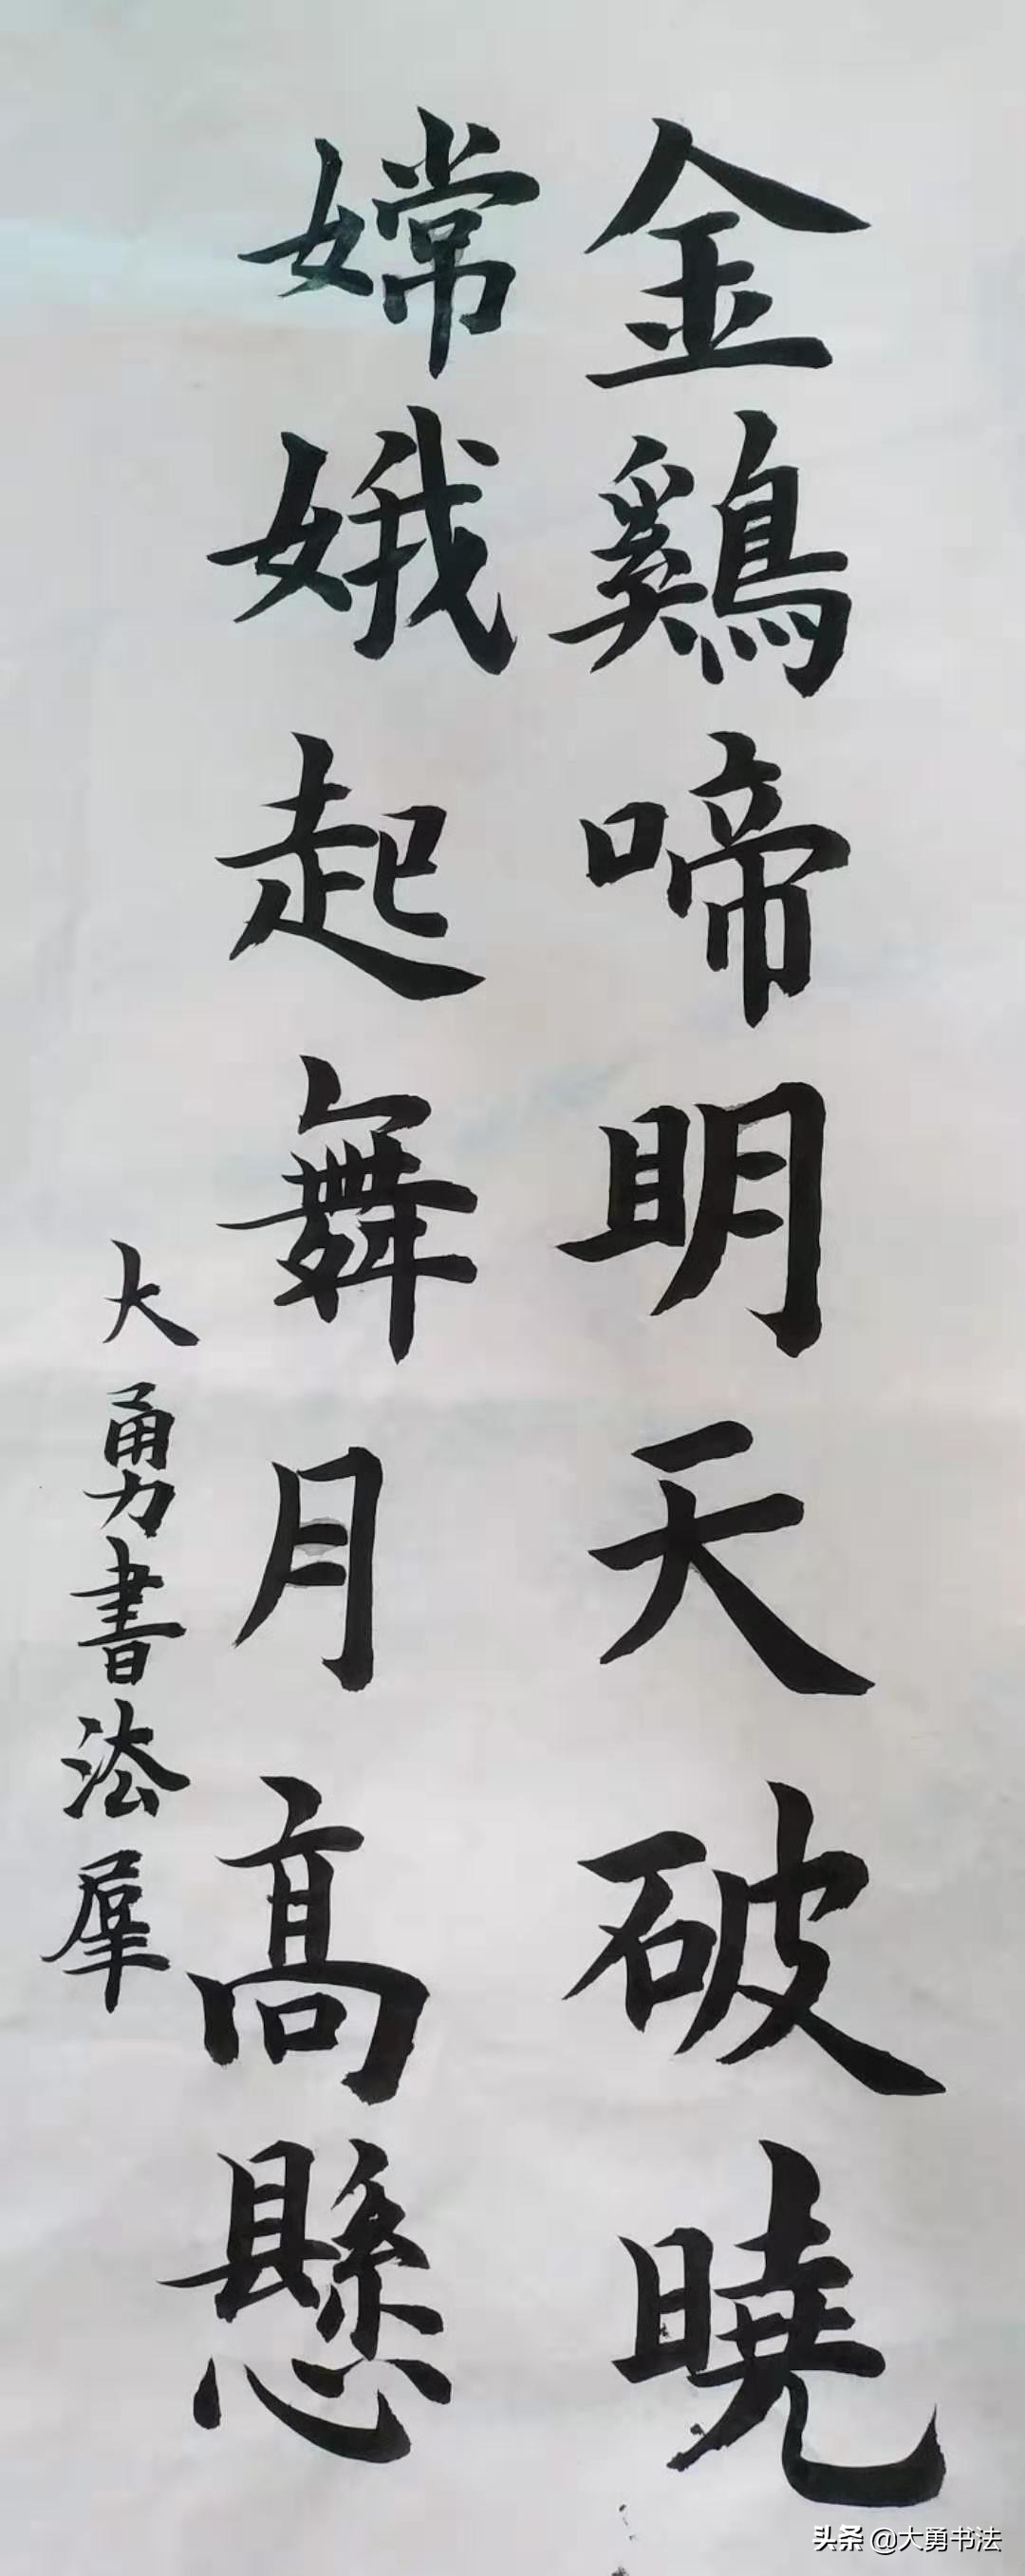 金鷄啼明天破曉
嫦娥起舞月高懸
大勇書法羣
头条 @大勇书法